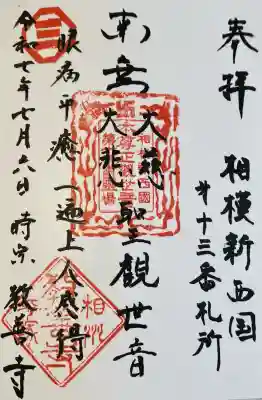 奉拝 相模新西国
第十三番札所
南無
大慈
大悲
聖観世音
眼病平癒 一遍上人感得
令和七年七月六日 時宗 教善寺